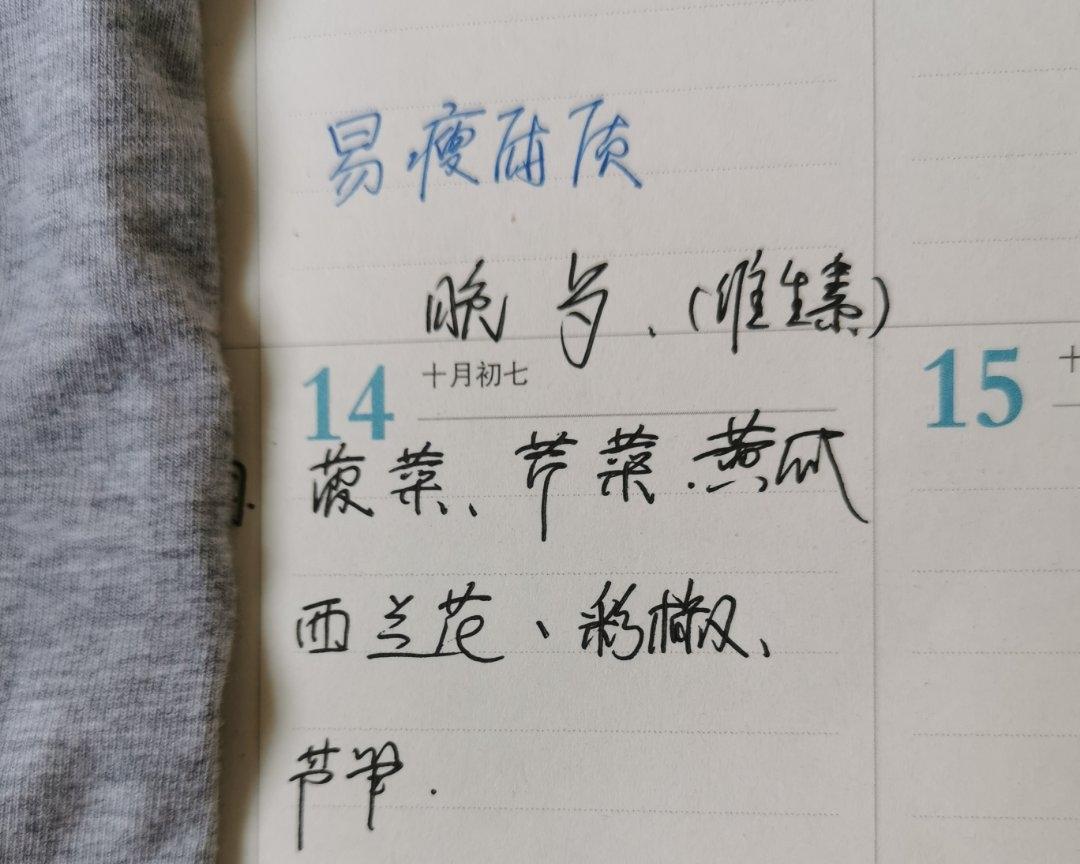 易瘦体质
晚 、(维生素)
14 十月初七
15 十
菠菜、芹菜.黄瓜
西兰花、彩椒、
芦笋.